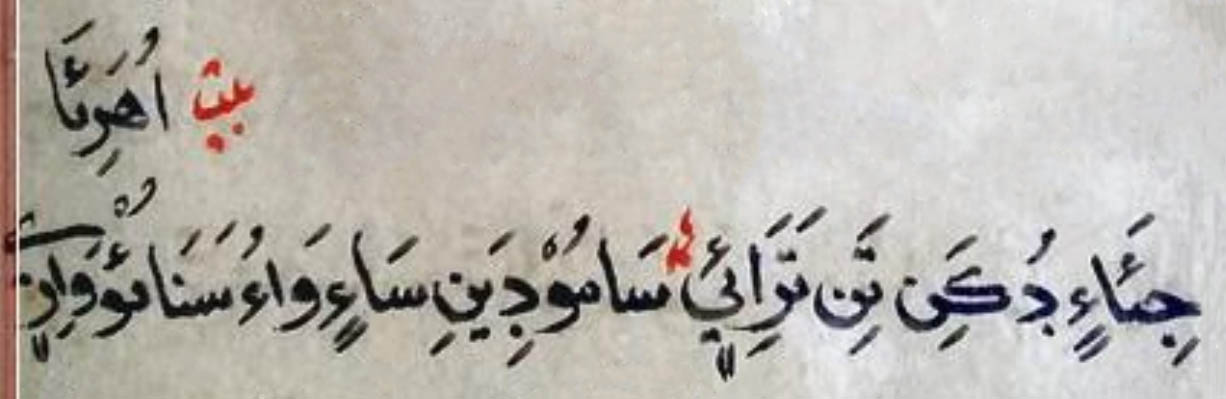 بيت اُهَرِئَا
جِئَاءٍ دُکَنِ تَنِ تَرَائِيٍ سَامُوْدِيَنِ سَاءٍ وَاءُ سَنَائُوْ